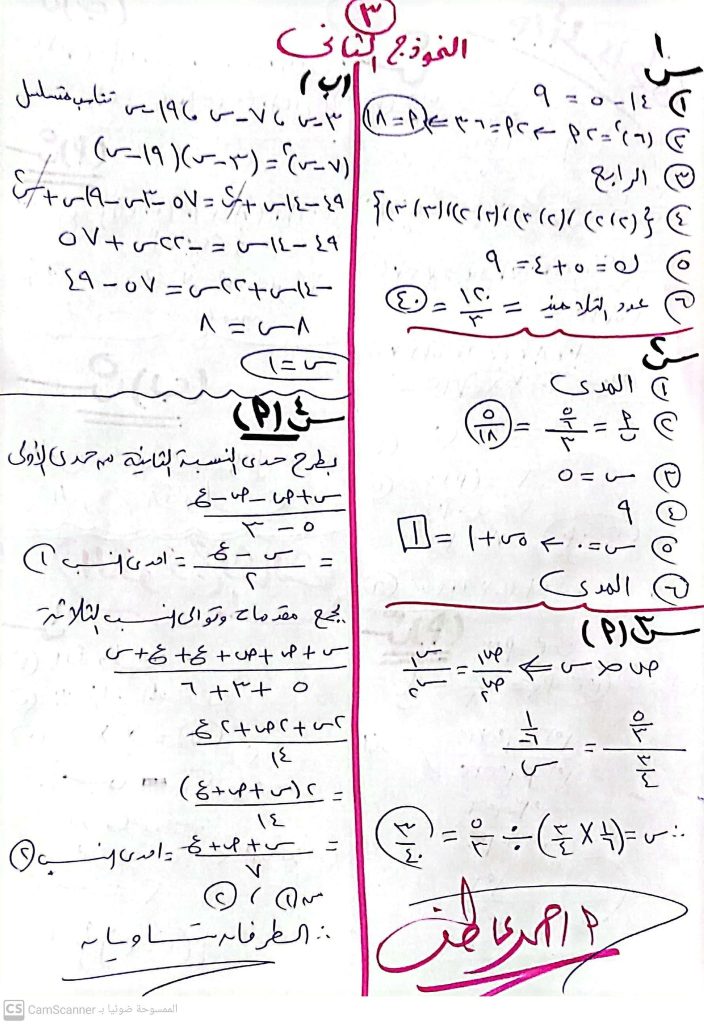 ٣
النموذج الثاني
س١
① ١٤ - ٥ = ٩
② (٦)² = ٢م ← ٢م = ٣٦ ← م = ١٨
③ الرابع
④ {(٢،٢)، (٢،٣)، (٣،٢)، (٣،٣)}
⑤ ل = ٥ + ٤ = ٩
⑥ عدد التلاميذ = ١٢٠/٣ = ٤٠
س٢
① المدى
② م/ب = (٥/٦)/٣ = ٥/١٨
③ س = ٥
④ ٩
⑤ س = ٠ ← ص + ١ = ١
⑥ المدى
س٣ (م)
ص ∝ س ⇐ ص١/ص٢ = س١/س٢
(٥/٢)/(٣/٤) = (١/٦)/س
∴ س = (١/٦ × ٣/٤) ÷ ٥/٣ = ٣/٤٠
م/ احمد عاطف
(ب)
٣-س ، ٧-س ، ١٩-س تناسب متسلسل
(٧-س)² = (٣-س)(١٩-س)
٤٩-١٤س+س² = ٥٧-٣س-١٩س+س²
٤٩-١٤س = -٢٢س+٥٧
-١٤س+٢٢س = ٥٧-٤٩
٨س = ٨
س = ١
س٤ (م)
بطرح حدى النسبة الثانية من حدى الأولى
س+ص-ص-ع / ٥-٣
= س-ع / ٢ = احدى النسب ①
بجمع مقدمات وتوالى النسب الثلاثة
س+ص+ص+ع+ع+س / ٥+٣+٦
٢س+٢ص+٢ع / ١٤
= ٢(س+ص+ع) / ١٤
= س+ص+ع / ٧ = احدى النسب ②
من ① ، ②
∴ الطرفان متساويان
CS CamScanner الممسوحة ضوئيا بـ